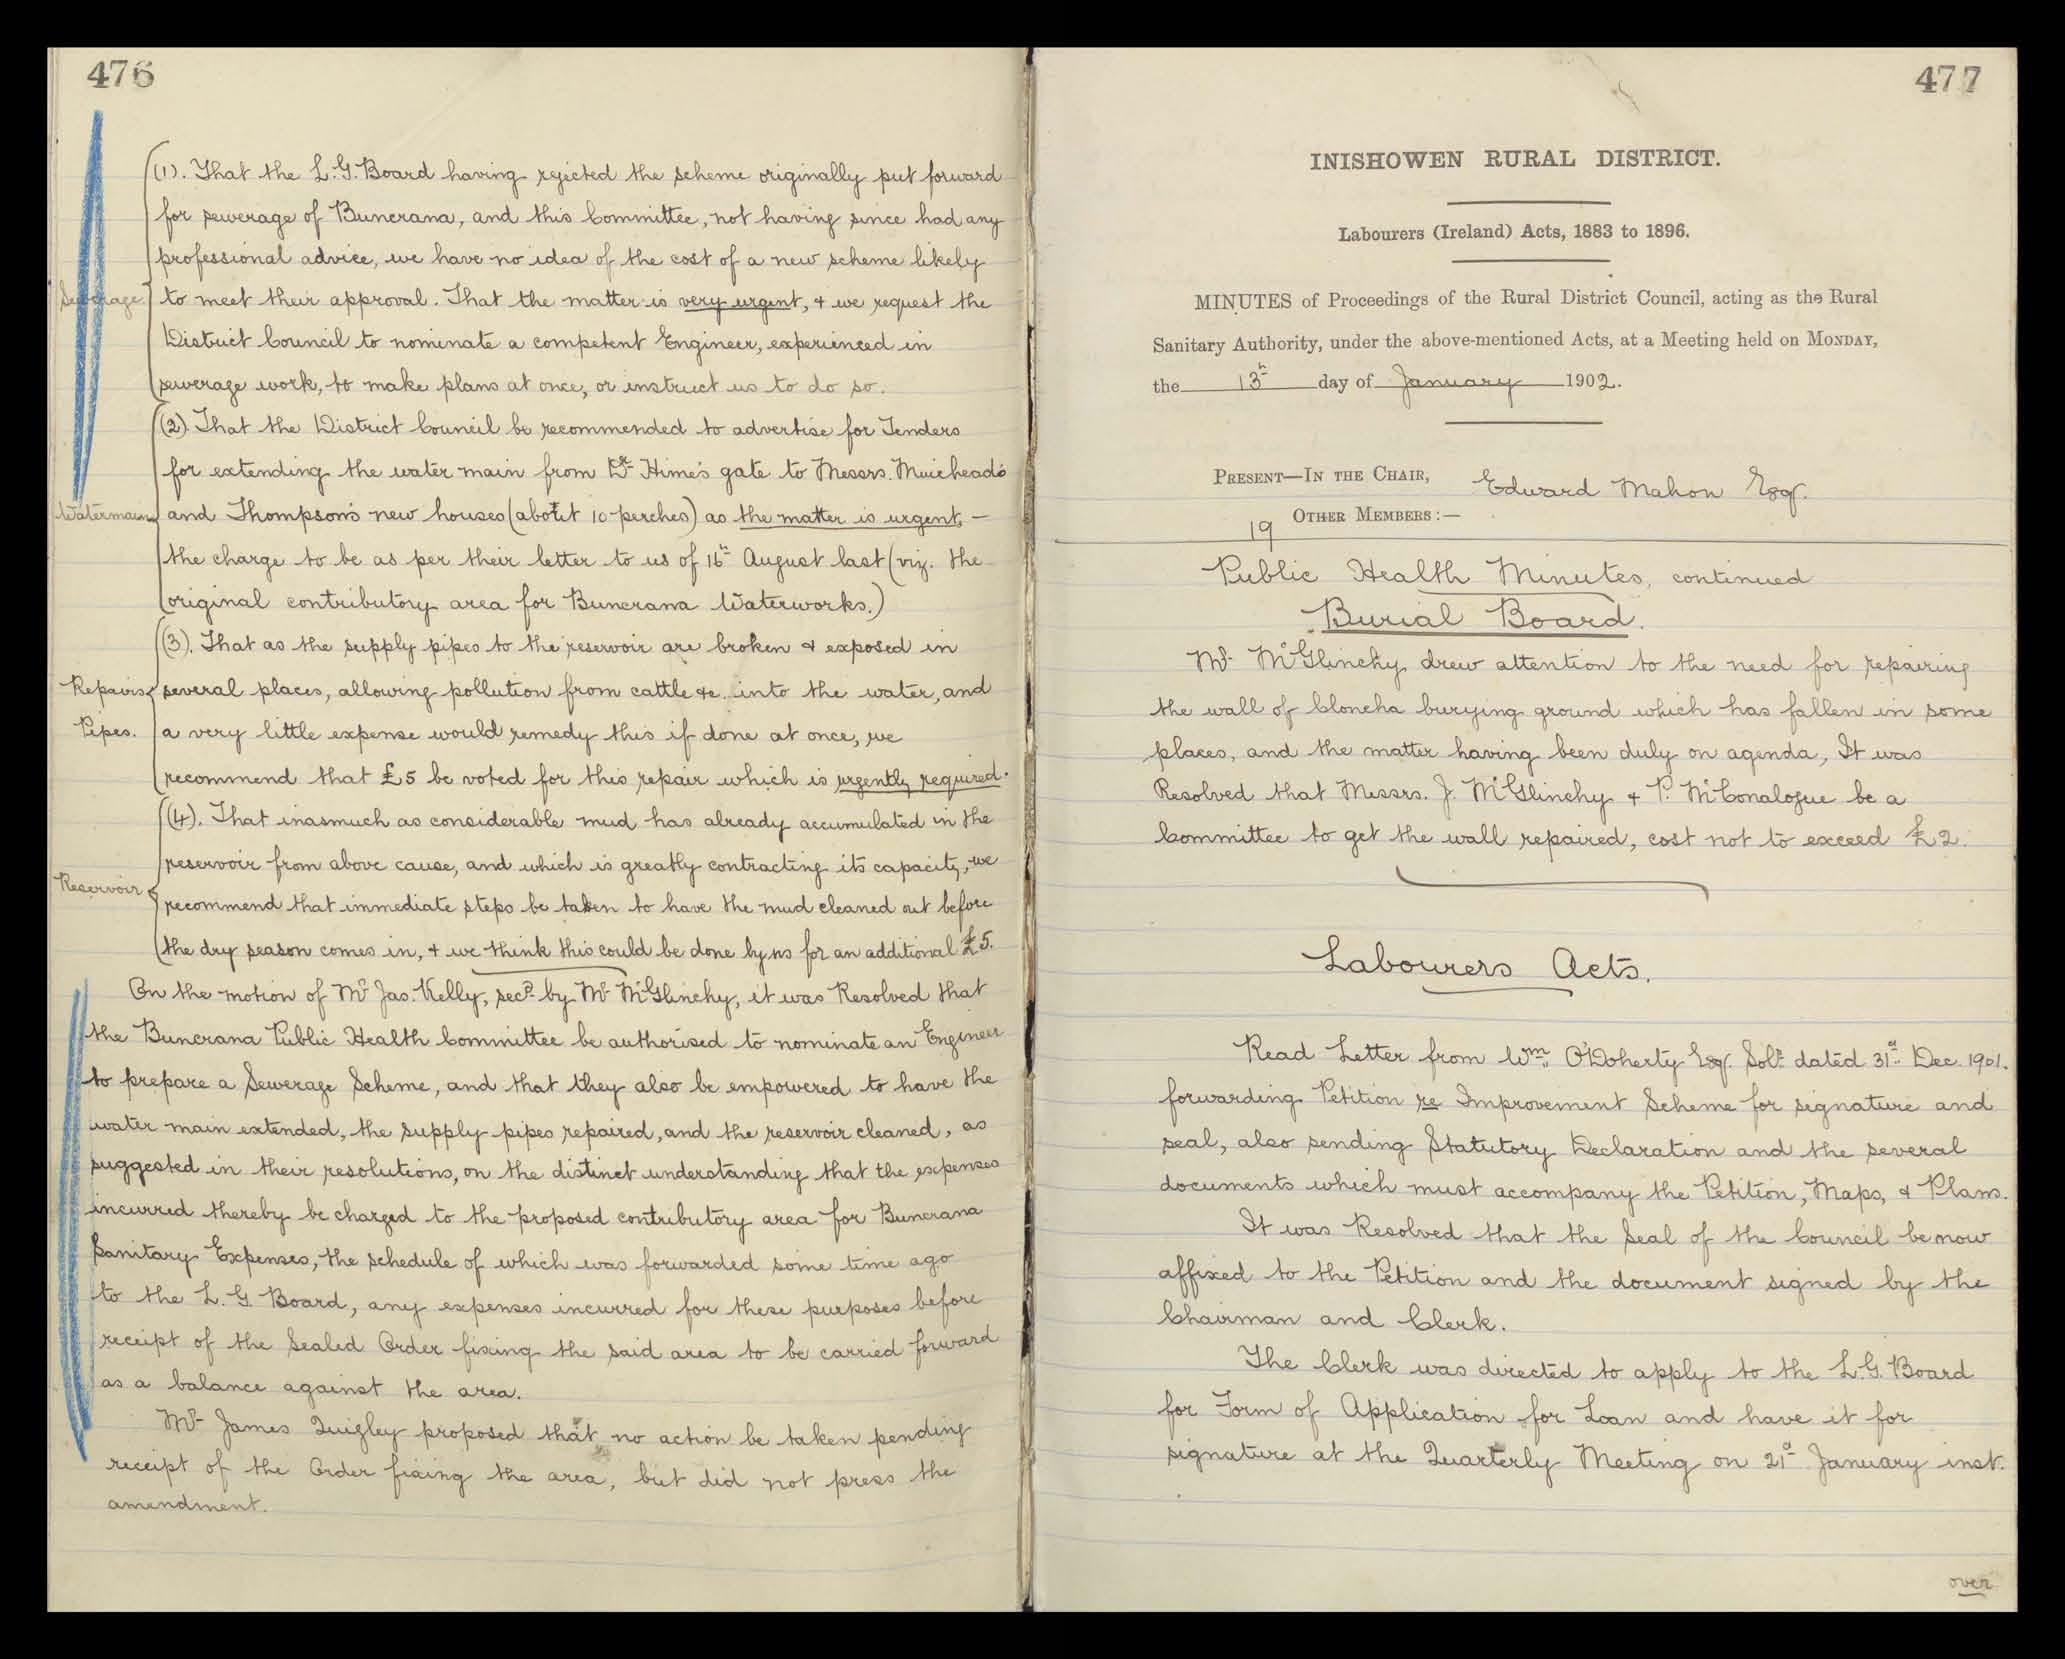 476
(1). That the L.G. Board having rejected the scheme originally put forward
for sewerage of Buncrana, and this Committee, not having since had any
professional advice, we have no idea of the cost of a new scheme likely
Sewerage. to meet their approval. That the matter is very urgent, & we request the
District Council to nominate a competent Engineer, experienced in
sewerage work, to make plans at once, or instruct us to do so.
(2) That the District Council be recommended to advertise for Tenders
for extending the water main from Dr Hime's gate to Messrs. Muirhead's
Watermain and Thompson's new houses (about 10 perches) as the matter is urgent, —
the charge to be as per their letter to us of 16th August last (viz. the
original contributory area for Buncrana Waterworks.)
(3). That as the supply pipes to the reservoir are broken & exposed in
Repairs several places, allowing pollution from cattle &c. into the water, and
Pipes. a very little expense would remedy this if done at once, we
recommend that £5 be voted for this repair which is urgently required.
(4). That inasmuch as considerable mud has already accumulated in the
reservoir from above cause, and which is greatly contracting its capacity, we
Reservoir recommend that immediate steps be taken to have the mud cleaned out before
the dry season comes in, & we think this could be done by us for an additional £5.
On the motion of Mr Jas. Kelly, secd. by Mr McGlinchy, it was Resolved that
the Buncrana Public Health Committee be authorised to nominate an Engineer
to prepare a Sewerage Scheme, and that they also be empowered to have the
water main extended, the supply pipes repaired, and the reservoir cleaned, as
suggested in their resolutions, on the distinct understanding that the expenses
incurred thereby be charged to the proposed contributory area for Buncrana
Sanitary Expenses, the schedule of which was forwarded some time ago
to the L.G. Board, any expenses incurred for these purposes before
receipt of the Sealed Order fixing the said area to be carried forward
as a balance against the area.
Mr James Quigley proposed that no action be taken pending
receipt of the Order fixing the area, but did not press the
amendment.
477
INISHOWEN RURAL DISTRICT.
Labourers (Ireland) Acts, 1883 to 1896.
MINUTES of Proceedings of the Rural District Council, acting as the Rural
Sanitary Authority, under the above-mentioned Acts, at a Meeting held on MONDAY,
the 13th day of January 1902.
PRESENT—IN THE CHAIR, Edward Mahon Esqr.
19 OTHER MEMBERS:—
Public Health Minutes, continued
Burial Board.
Mr McGlinchy drew attention to the need for repairing
the wall of Cloncha burying ground which has fallen in some
places, and the matter having been duly on agenda, It was
Resolved that Messrs. J. McGlinchy & P. McConalogue be a
Committee to get the wall repaired, cost not to exceed £2.
Labourers Acts.
Read Letter from Wm. O'Doherty Esqr. Solr. dated 31st Dec. 1901.
forwarding Petition re Improvement Scheme for signature and
seal, also sending Statutory Declaration and the several
documents which must accompany the Petition, Maps, & Plans.
It was Resolved that the Seal of the Council be now
affixed to the Petition and the document signed by the
Chairman and Clerk.
The Clerk was directed to apply to the L.G. Board
for Form of Application for Loan and have it for
signature at the Quarterly Meeting on 21st January inst.
over